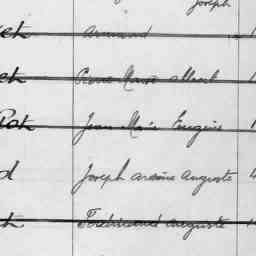 Joseph
Armand
Pierre Marie Albert
Jean Marie Eugène
Joseph Arsène Auguste
Ferdinand Auguste